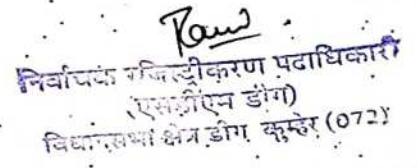 निर्वाचक रजिस्ट्रीकरण पदाधिकारी
(एसडीएम डीग)
विधानसभा क्षेत्र डीग कुम्हेर (072)